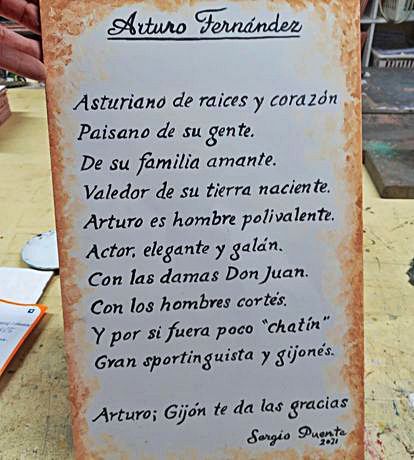 Arturo Fernández
Asturiano de raices y corazón
Paisano de su gente.
De su familia amante.
Valedor de su tierra naciente.
Arturo es hombre polivalente.
Actor, elegante y galán.
Con las damas Don Juan.
Con los hombres cortés.
Y por si fuera poco "chatín"
Gran sportinguista y gijonés.
Arturo; Gijón te da las gracias
Sergio Puente
2021